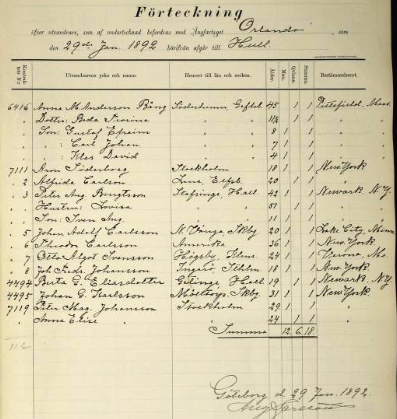 Förteckning
öfver utvandrare, som af undertecknad befordras med Ångfartyget Orlando, som
den 29de Jan. 1892 härifrån afgår till Hull.
Kontrakt N:o Utvandrarnes yrke och namn. Hemort till län och socken. Ålder. Män. Qvinnor. Summa. Bestämmelseort.
6416 Anna M. Anderson Bång Söderhamn, Gefleb 45 1 1 Pittsfield, Mass.
Dotter: Beda 1 1
Son: Gustaf Efraim 8 1 1
" Carl Johan 7 1 1
" Klas David 4 1 1
7111 Aron Söderberg Stockholm 18 1 1 New York
" 2 Alfrida Carlson 20 1 1 "
" 3 Peter Aug. Bengtson Hall 42 1 1 Newark N.Y.
Hustru: Lovisa 51 1 1
Son: Sven Aug. 11 1 1
" 5 Johan Adolf Carlsson Skbg 20 1 1 Lake City, Minn
" 6 Theodor Carlsson Amerika 36 1 1 New York.
" 7 Otto Algot Svensson Högsby, Klmr 24 1 1
" 8 Joh. Fredr. Johansson Ingarö, Sthlm 18 1 1 New York
4494 Berta G. Eliasdotter Getinge, Hall 19 1 1 Newark, N.Y.
4495 Johan G. Karlsson Skbg 31 1 1 New York.
7119 Peter Mag. Johansson Stockholm 29 1 1 "
Anna Elise " 24 1 1 "
Summa 12 6 18
Göteborg d. 29 Jan. 1892.